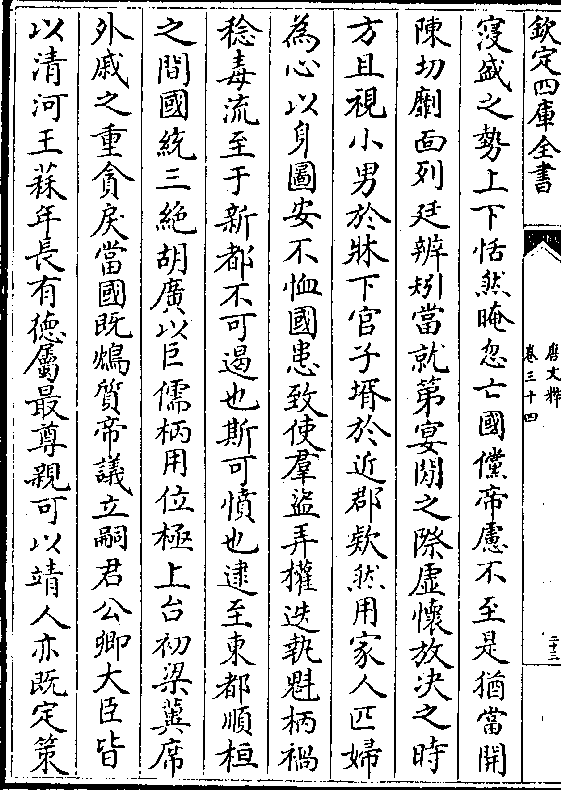 欽定四庫全書
唐文粹
卷三十四
二十三
寖盛之勢上下恬然晻忽亡國儻帝慮不至是猶當開
陳切劘面列廷辨矧當就第宴閒之際虛懷放决之時
方且視小男於牀下官子壻於近郡欵然用家人匹婦
為心以身圖安不恤國患致使羣盜弄權迭執魁柄禍
稔毒流至于新都不可遏也斯可憤也逮至東都順桓
之間國統三絶胡廣以巨儒柄用位極上台初梁冀席
外戚之重貪戾當國既鴆質帝議立嗣君公卿大臣皆
以清河王蒜年長有德屬最尊親可以靖人亦既定策